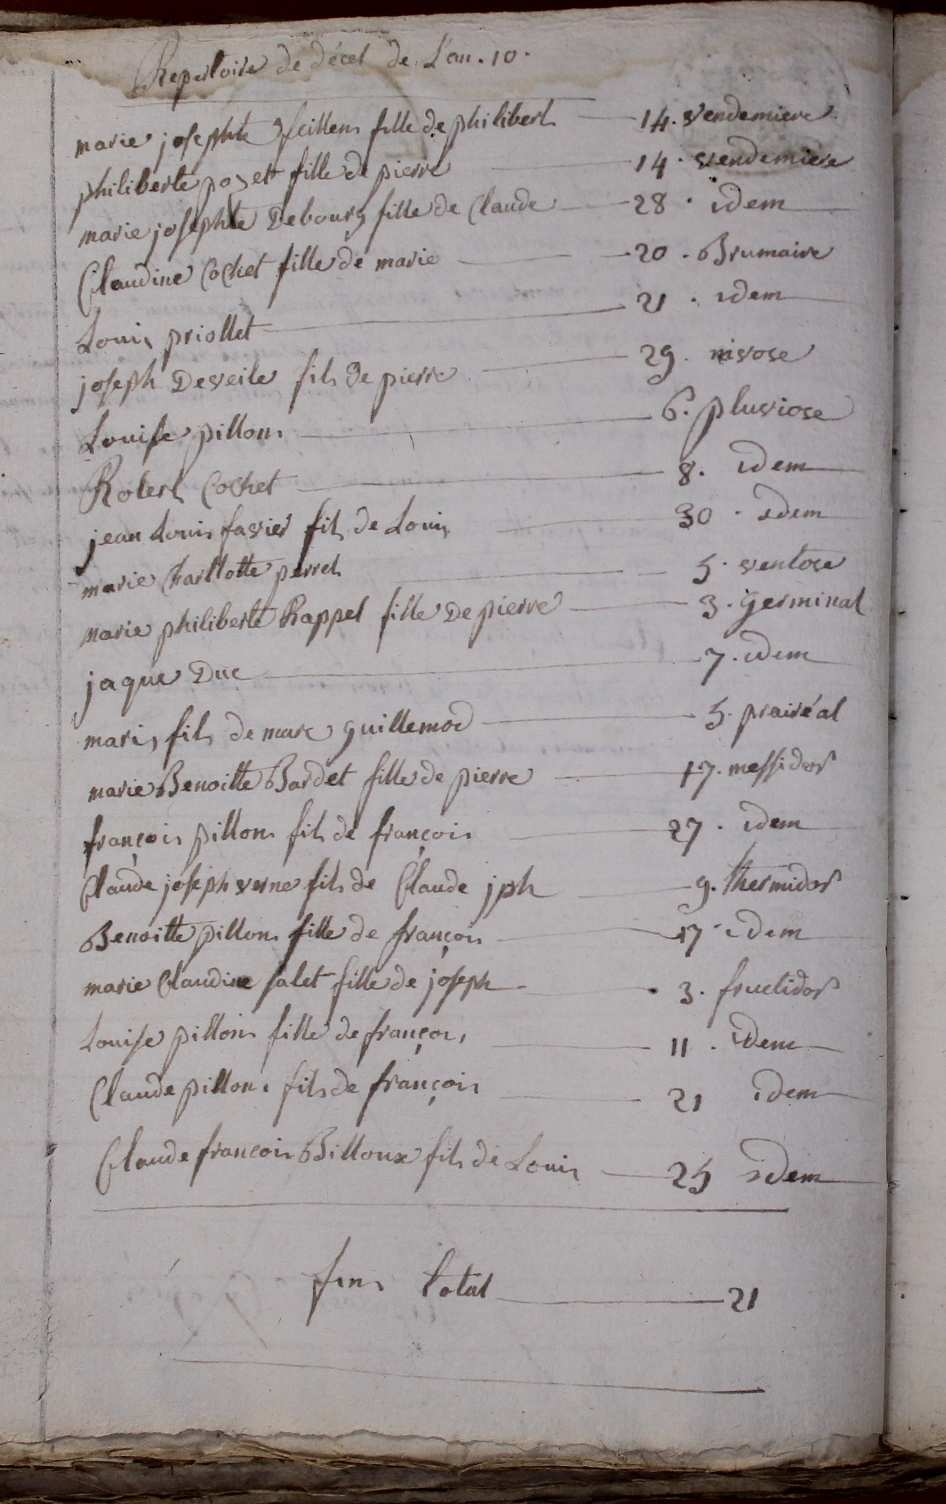 Repertoire de décet de L'an .10.
marie josephte feillens fille de philibert 14. vendemiere
philiberte poyett fille de pierre 14. vendemiere
marie josephte Debourg fille de Claude 28. idem
Claudine Cochet fille de marie 20. Brumaire
Louis priollet 21. idem
joseph Desveile fils de pierre 29. nivose
Louise pillon 6. pluviose
Robert Cochet 8. idem
jean Louis favier fils de Louis 30. idem
marie Charllotte perret 5. ventose
marie philiberte Rappet fille De pierre 3. germinal
jaque Duc 7. idem
maris fils de marc guillemod 5. prairéal
marie Benoitte Bardet fille de pierre 17. messidor
françois pillon fils de françois 27. idem
Claude joseph verne fils de Claude jph 9. thermidor
Benoitte pillon fille de françois 17 idem
marie Claudine salet fille de joseph 3. fructidor
Louise pillon fille de françois 11. idem
Claude pillon fils de françois 21 idem
Claude françois Billoux fils de Louis 25 idem
fin total 21